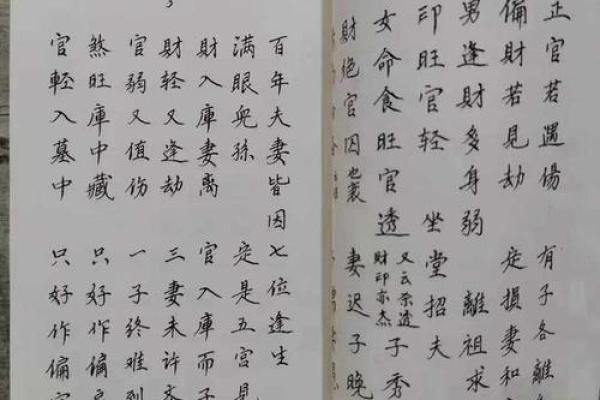 正官若遇伤 有子各離
偏財若見劫 定損妻和
男逢財多身弱 離祖求
印旺官轻 坐堂招夫
女命食旺官透 又云杀透 財印亦杰 子秀
財绝官囚也衰 妻迟子晚
百年夫妻皆因七位逢生
满眼兒孫 定是五宫見
財入庫妻離 官入庫而子
財轻又逢劫 三妻未许
官弱又值伤 一子终难到
煞旺庫中藏 只好作偏
官輕入墓中 只好作偏